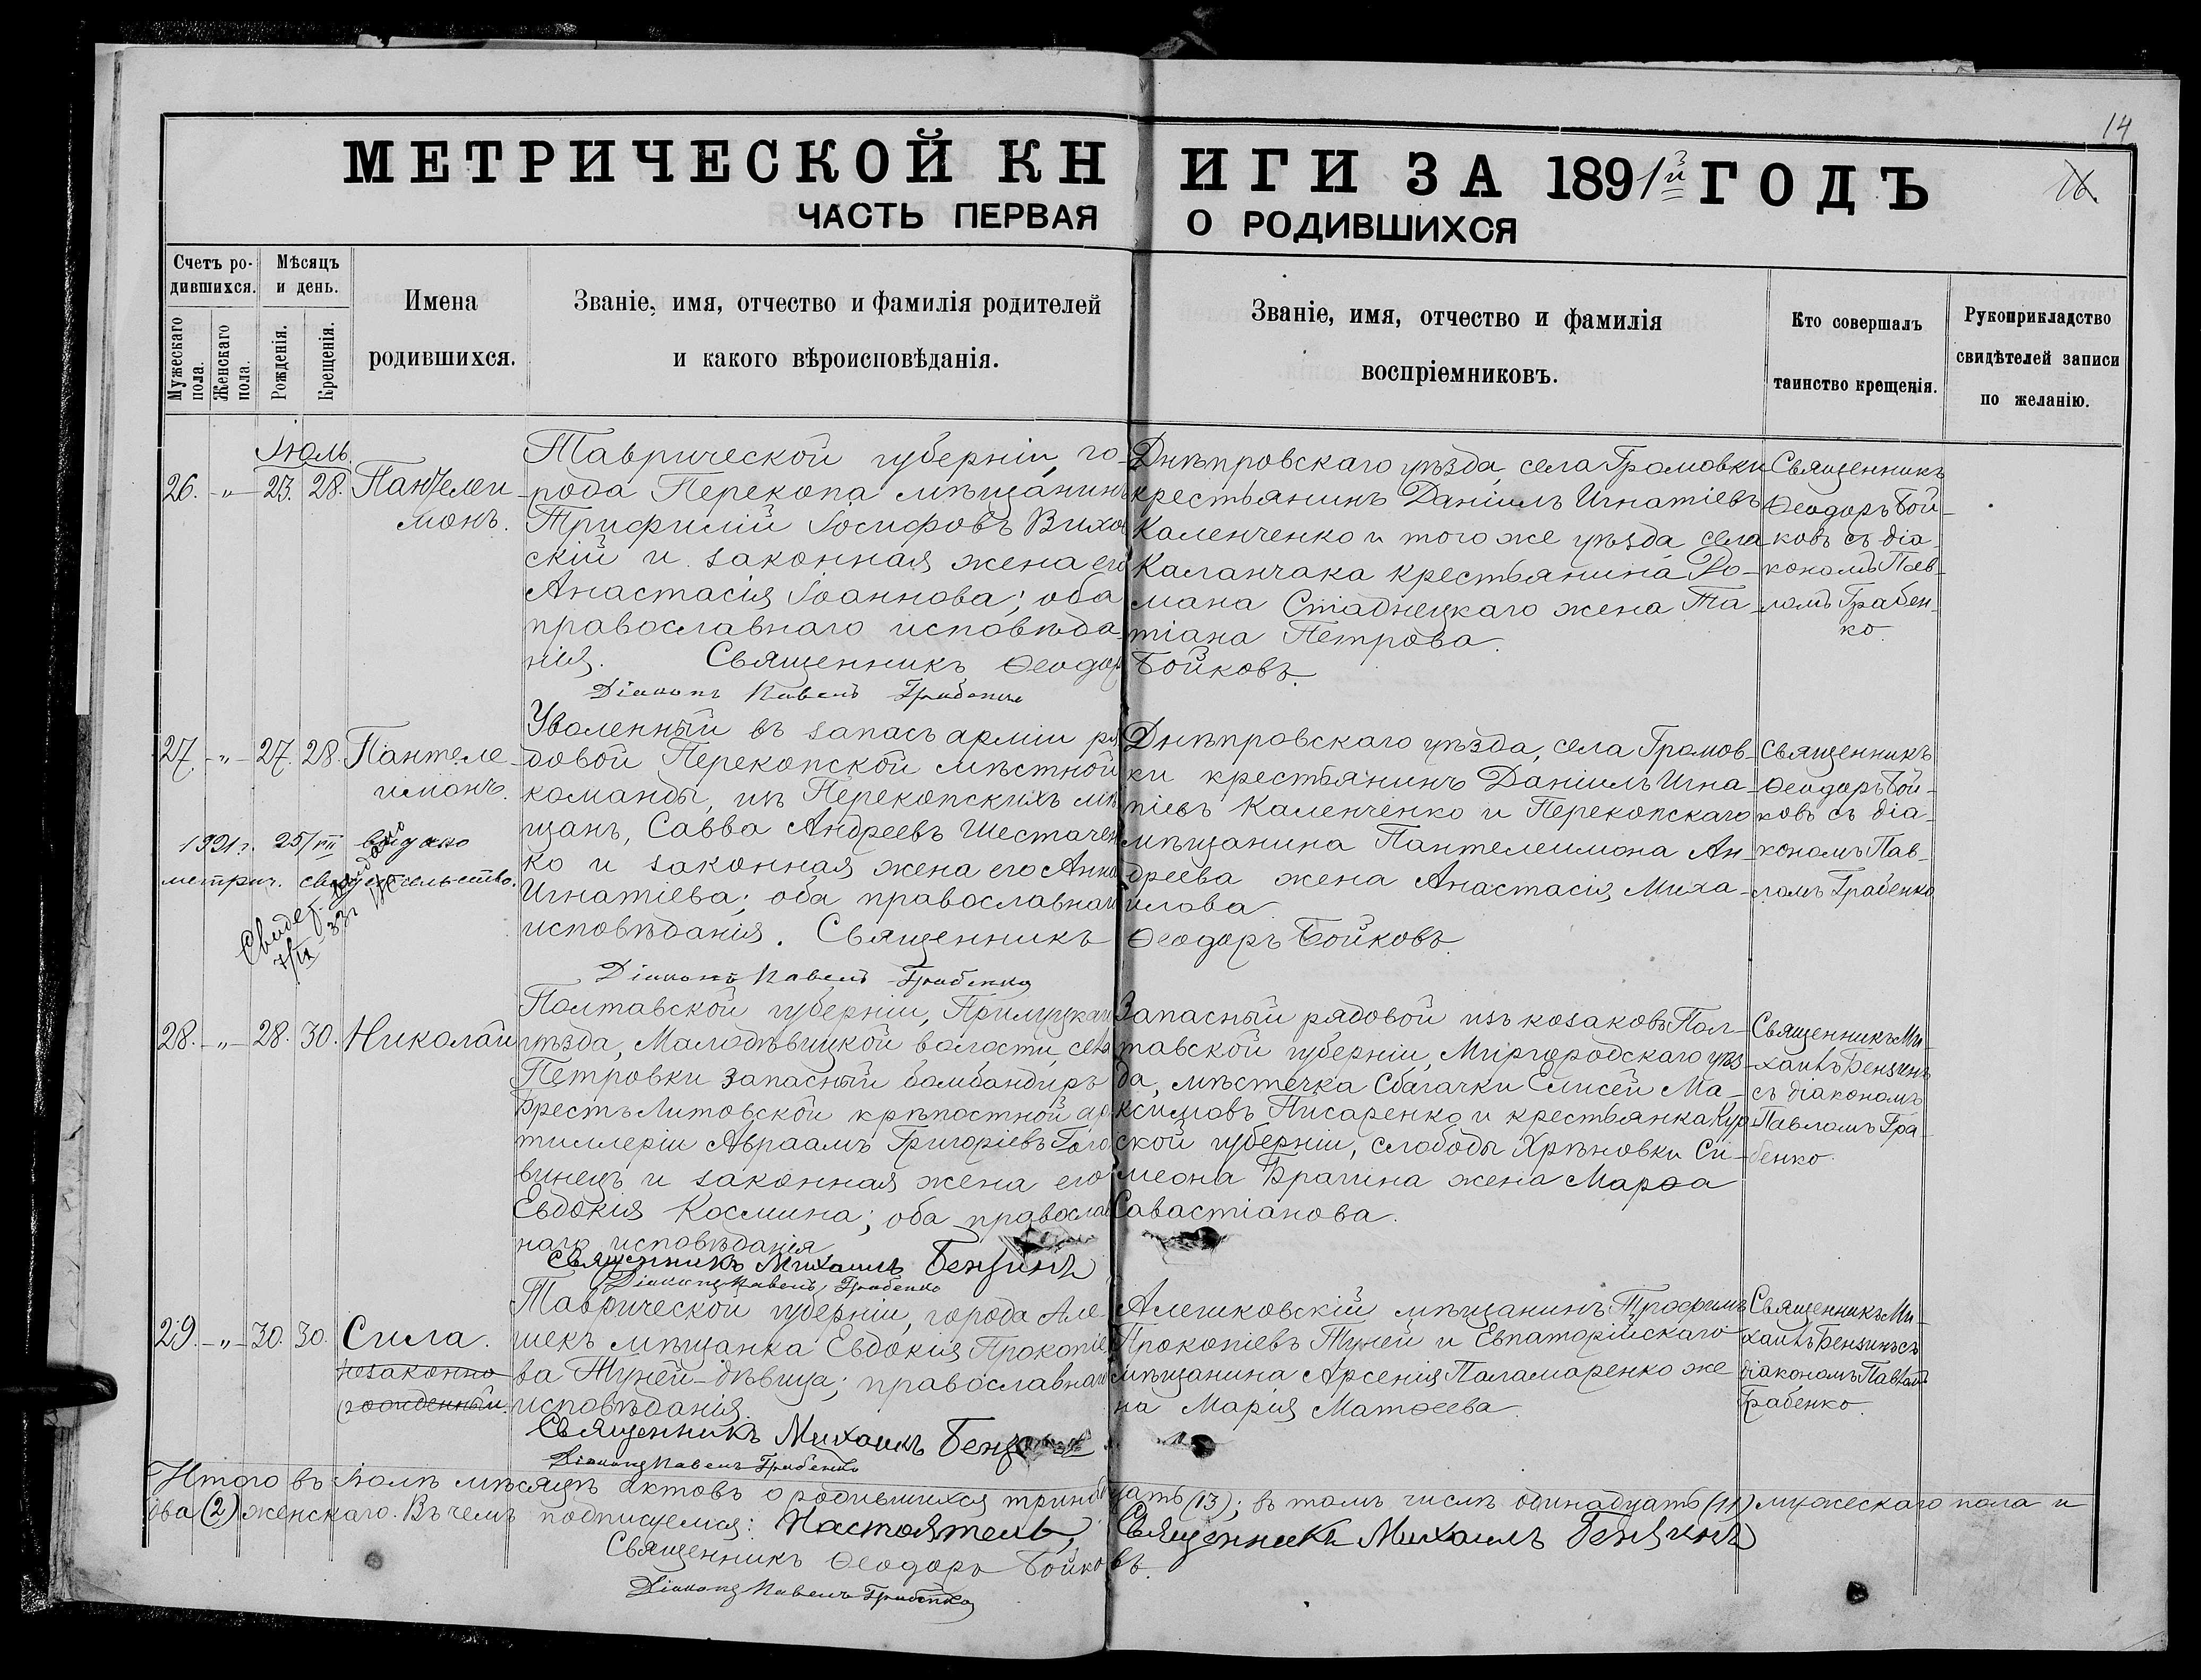 14
16.
МЕТРИЧЕСКОЙ КНИГИ ЗА 1891й ГОДЪ
ЧАСТЬ ПЕРВАЯ О РОДИВШИХСЯ
Счетъ родившихся.
Мужескаго пола.
Женскаго пола.
Мѣсяцъ и день.
Рожденія.
Крещенія.
Имена
родившихся.
Званіе, имя, отчество и фамилія родителей
и какого вѣроисповѣданія.
Званіе, имя, отчество и фамилія
воспріемниковъ.
Кто совершалъ
таинство крещенія.
Рукоприкладство
свидѣтелей записи
по желанію.
Іюль.
26. - „ - 23. 28. Пантелеи-
монъ.
Таврической губерніи, го-
рода Перекопа мѣщанинъ
Трифилій Іосифовъ
скій и законная жена его
Анастасія Іоаннова; оба
православнаго исповѣда-
нія. Священникъ Ѳеодоръ Бойковъ.
Діаконъ Павелъ Грабенко
Днѣпровскаго уѣзда, села Громовки
крестьянинъ Даніилъ Игнатіевъ
Каленченко и того же уѣзда, села
Каланчака крестьянина Ро-
мана Стаднецкаго жена Та-
тіана Петрова.
Священникъ
Ѳеодоръ Бой-
ковъ съ діа-
кономъ Пав-
ломъ Грабен-
ко.
27. - „ - 27. 28. Пантеле-
имонъ.
1921г. 25/VII выдано
метрич. свидетельство.
Свидет.
7/IX 33г
Уволенный въ запасъ арміи ря-
довой Перекопской мѣстной
команды, изъ Перекопскихъ мѣ-
щанъ, Савва Андреевъ Шестачен-
ко и законная жена его Анна
Игнатіева; оба православнаго
исповѣданія. Священникъ Ѳеодоръ Бойковъ
Діаконъ Павелъ Грабенко
Днѣпровскаго уѣзда, села Громов-
ки крестьянинъ Даніилъ Игна-
тіевъ Каленченко и Перекопскаго
мѣщанина Пантелеимона Ан-
дреева жена Анастасія Миха-
илова
Священникъ
Ѳеодоръ Бой-
ковъ съ діа-
кономъ Пав-
ломъ Грабенко
28. - „ - 28. 30. Николай
Полтавской губерніи, Прилуцкаго
уѣзда, Малодѣвицкой волости, села
Петровки запасный бомбандиръ
Брестъ Литовской крѣпостной ар-
тиллеріи Авраамъ Григоріевъ
винецъ и законная жена его
Евдокія Космина; оба православ-
наго исповѣданія
Священникъ Михаилъ Бензинъ
Діаконъ Павелъ Грабенко
Запасный рядовой изъ козаковъ Пол-
тавской губерніи, Миргородскаго уѣз-
да, мѣстечка Сбагачки Елисей Ма-
ксимовъ Писаренко и крестьянка Кур-
ской губерніи, слободы Хрѣновки Си-
меона Брагина жена Марѳа
Савастіанова.
Священникъ Ми-
хаилъ Бензинъ
съ діакономъ
Павломъ Гра-
бенко.
29. - „ - 30. 30. Сила.
незаконно-
рожденный.
Таврической губерніи, города Але-
шекъ мѣщанка Евдокія Прокопіе-
ва Тужей-дѣвица; православнаго
исповѣданія.
Священникъ Михаилъ Бензинъ
Діаконъ Павелъ Грабенко
Алешковскій мѣщанинъ Трофимъ
Прокопіевъ Тужей и Евпаторійскаго
мѣщанина Арсенія Паламаренко же-
на Марія Матѳеева.
Священникъ Ми-
хаилъ Бензинъ съ
діакономъ Павломъ
Грабенко.
Итого въ Іюлѣ мѣсяцѣ актовъ о родившихся тринадцать (13); въ томъ числѣ одинадцать (11) мужескаго пола и
два (2) женскаго. Въ чемъ подписуемся: Настоятель, Священникъ Михаилъ Бензинъ
Священникъ Ѳеодоръ Бойковъ.
Діаконъ Павелъ Грабенко